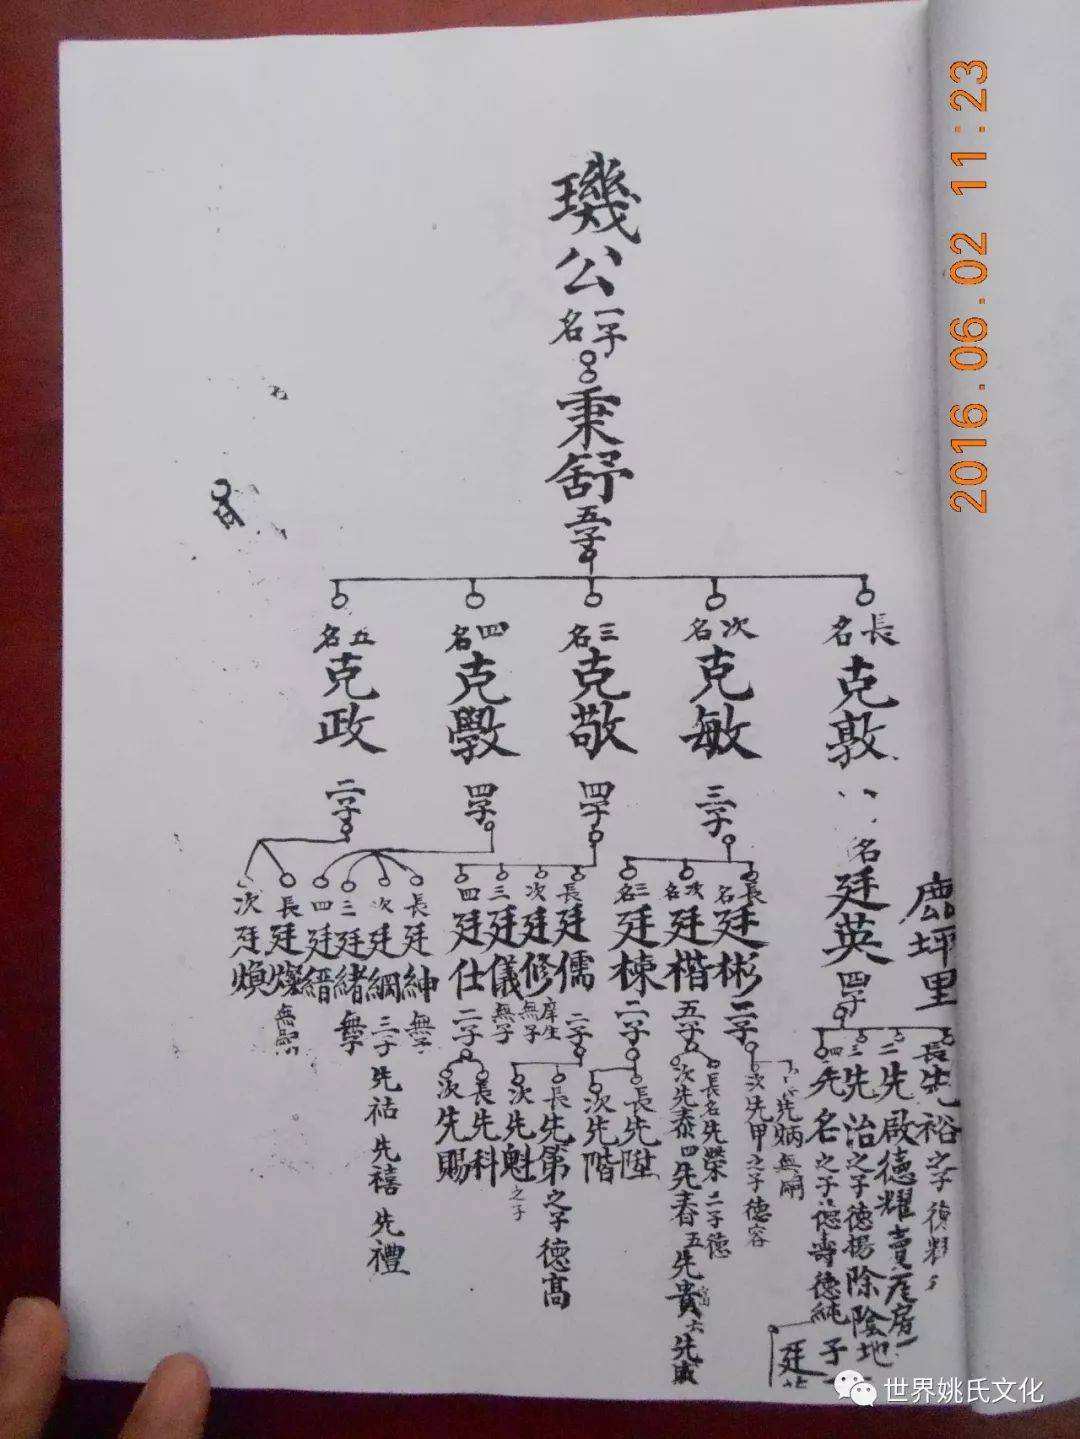 璣公
一子
名
秉舒
五子
長名克敦
次名克敏 三子
三名克敬 四子
四名克斅 四子
五名克政 二子
鹿坪里
名廷英 四子
長先裕之子
二先啟德耀賣庄房
三先治之子德楊除陰地
四先名之子德壽德純
子
廷
長名廷彬 二子
先炳無嗣
次先甲之子德容
次名廷楷 五子
長名先榮二子德
次先泰四先春五先貴六先
三名廷棟 二子
長先陞
次先階
長廷儒 二子
庠生
長先第之子德高
次先魁之子
次廷修 無子
三廷儀 無子
四廷仕 二子
長先科
次先賜
長廷紳 無子
次廷綱 三子先祜先禧先禮
廷緒 無子
四廷縉
長廷燦 無嗣
次廷煥
2016.06.02 11:23
世界姚氏文化